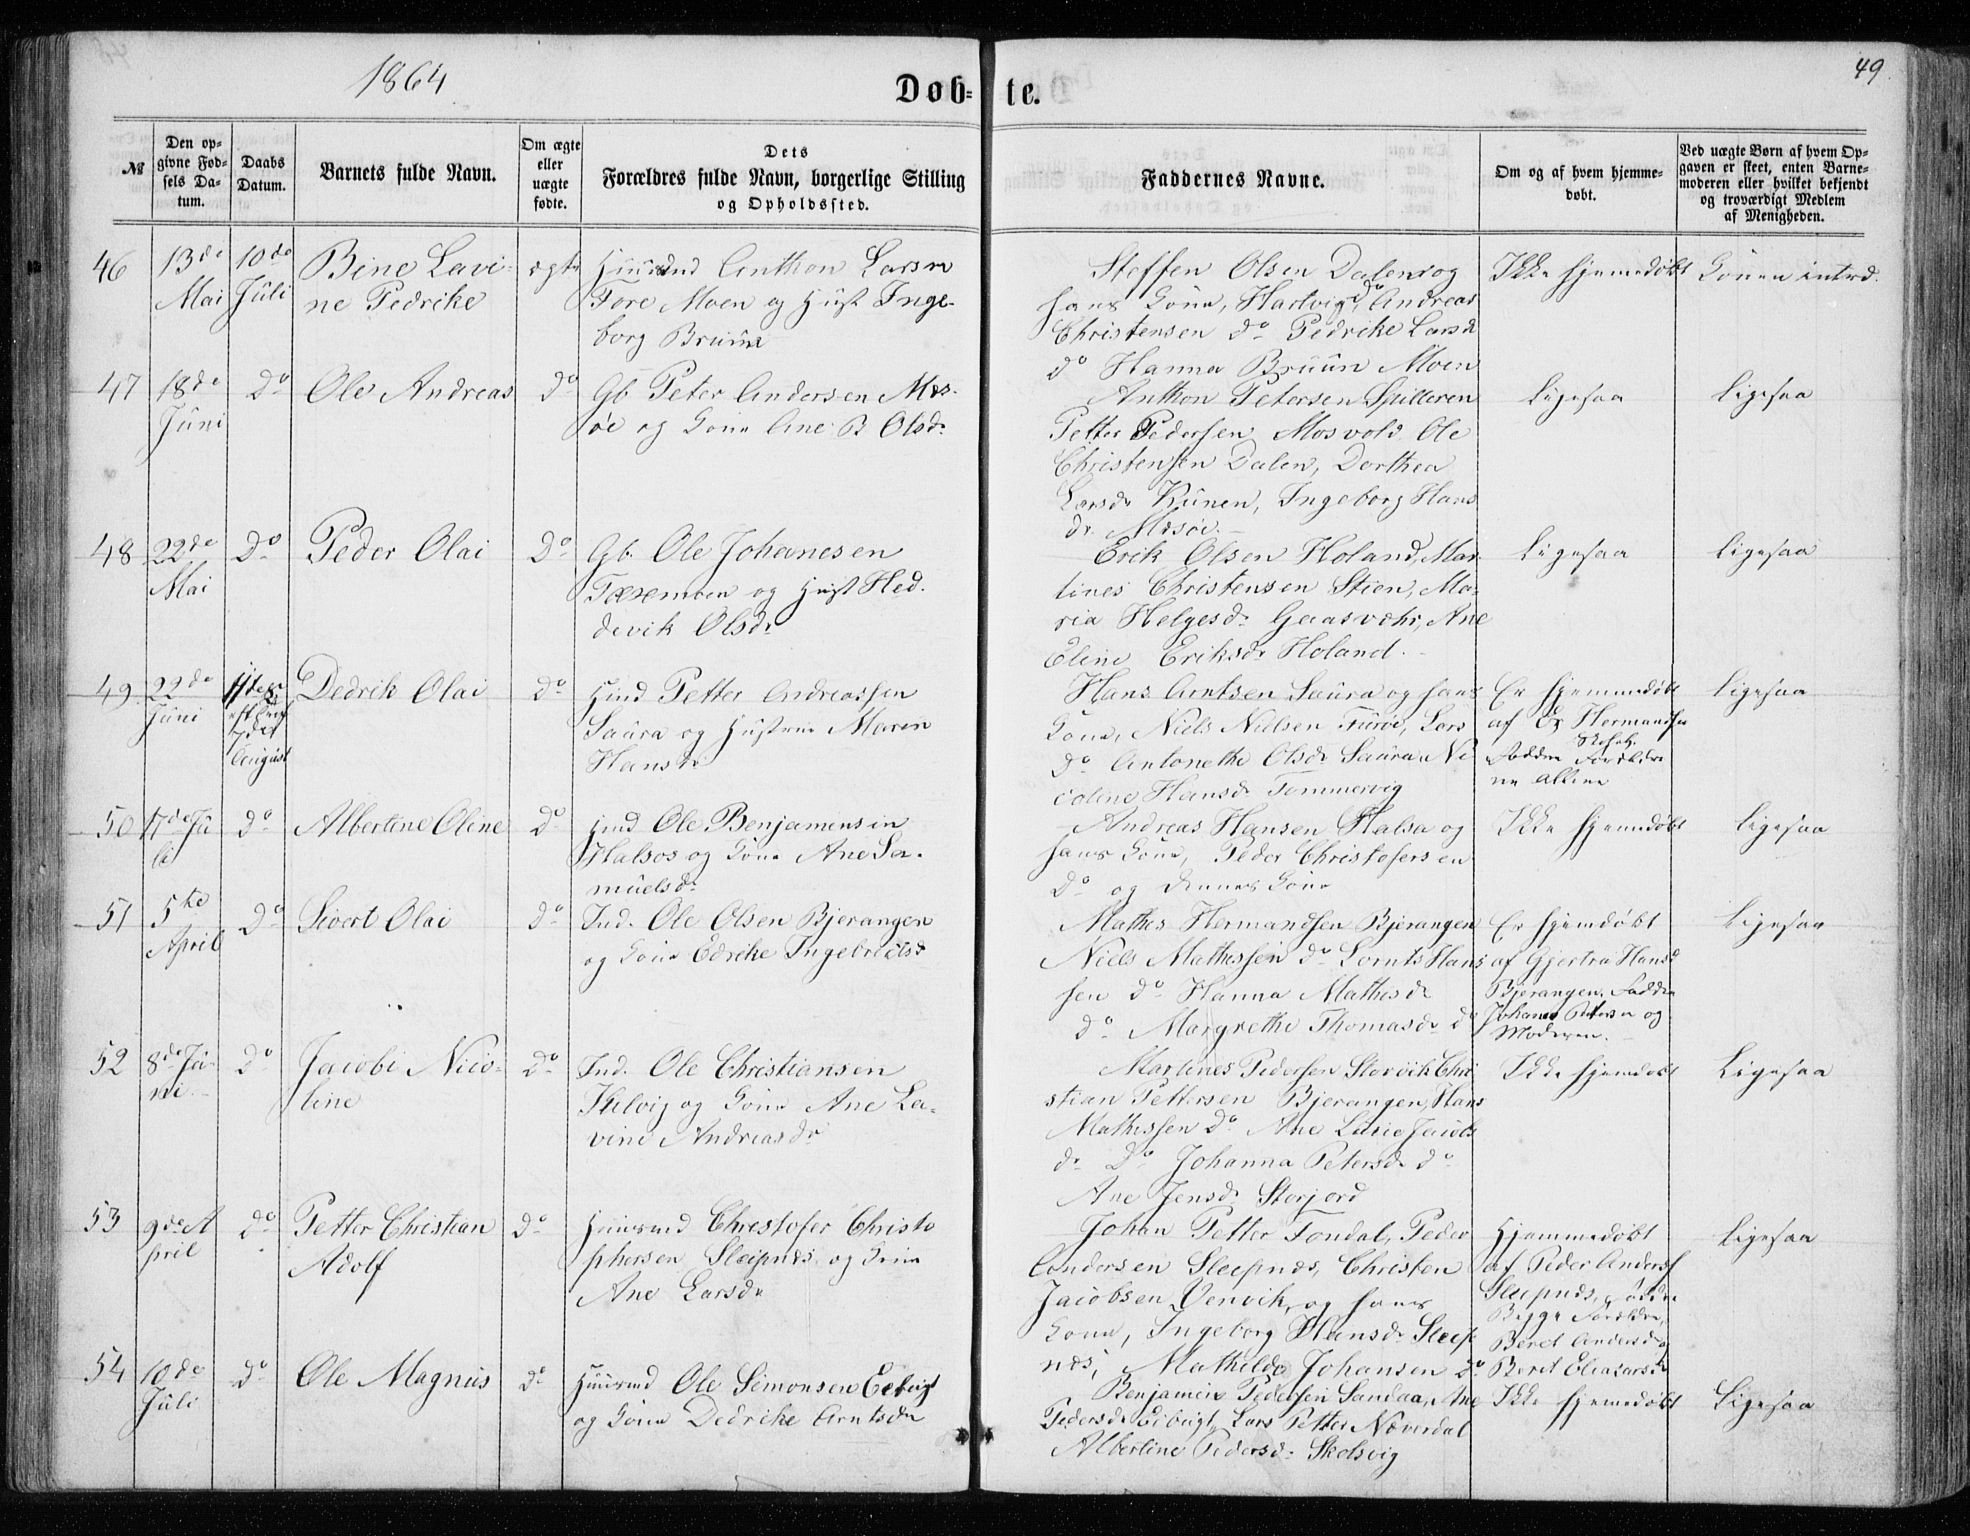 1864
49.
Døb-te.
№
Den opgivne Fødsels Datum.
Daabs Datum.
Barnets fulde Navn.
Om ægte eller uægte fødte.
Dets Forældres fulde Navn, borgerlige Stilling og Opholdssted.
Faddernes Navne.
Om og af hvem hjemmedøbt.
Ved uægte Børn af hvem Opgaven er skeet, enten Barnemoderen eller hvilket bekjendt og troværdigt Medlem af Menigheden.
46
13de Mai
10de Juli
Bine Lavi-
ne Pedrike
ægte
Huusmd Anthon Larsen
Fore Moen og Hust Inge-
borg Bruun
Steffen Olsen Dalen og
hans Kone, Hartvig do Andreas
Christensen do Pedrike Larsd
do Hanna Bruun Moen
Ikke hjemmedøbt
Konen introd.
47
18de Juni
do
Ole Andreas
do
Gb. Peter Andersen Mes-
øe og Kone Ane B Olsdr
Anthon Petersen Spilleren
Petter Pedersen Mosvold Ole
Christensen Dalen, Dorthea
Larsdr Kunen, Ingeborg Hans
dr Mesøe.
Ligesaa
Ligesaa
48
22de Mai
do
Peder Olai
do
Gb. Ole Johanesen
og Hust Hed-
devik Olsdr
Erik Olsen Holand, Mar-
tines Christensen Stien, Ma-
ria Helgesdr Gaasvær, Ane
Eline Eriksdr Holand.
Ligesaa
Ligesaa
49
22de Juni
7de August
Dedrik Olai
do
Hmd Petter Andreassen
Saura og Hustrue Maren
Hansdr
Hans Arntsen Saura og hans
Kone, Niels Nielsen Furøe, Lars
do Antonethe Olsdr Saura Ni
coline Hansdr Tømmervig
Er hjemmedøbt
af Hermansen
Faddere Foreldre
ne allene
Ligesaa
50
17de Ju
li
do
Albertine Oline
do
Hmd Ole Benjaminsen
Halsos og Kone Ane Sa-
muelsdr
Andreas Hansen Halsa og
hans Kone, Peder Christofersen
do og dennes Kone
Ikke hjemmedøbt
Ligesaa
51
5te April
do
Sivert Olai
do
Ind. Ole Olsen Bjerangen
og Kone Edrike Ingebrigtsd
Mathis Hermansen Bjerangen
Niels Mathissen do Lornts Hans
sen do Hanna Mathisdr
do Margrethe Thomasdr do
Er hjemdøbt
af Gjertru Hansd
Bjerangen. Faddere
Johan Petersen og
Moderen.
Ligesaa
52
8de Ju-
ni
do
Jacobe Nico-
line
do
Ind. Ole Christiansen
Kelvig og Kone Ane La-
vine Andreasdr
Martines Pedersen Storvik Chri
stian Pettersen Bjerangen, Hans
Mathissen do Ane Lucie Jacobs
dr do Johanna Petersdr do
Ane Jensdr Storjord
Ikke hjemdøbt
Ligesaa
53
9de A
pril
do
Petter Christian
Adolf
do
Huusmd Christofer Christo
phersen Sleipnes og Kone
Ane Larsdr
Johan Petter Fondal, Peder
Andersen Sleipnes, Christen
Jacobsen Venvik, og hans
Kone, Ingeborg Hansdr Sleip
nes, Mathilde Johansen do
Hjemmedøbt
af Peder Anders
Sleipnes, Faddere
Begge Foreldre,
Beret Andersdr og
Beret Eleasarsd
Ligesaa
54
10de Juli
do
Ole Magnus
do
Huusmd Ole Simonsen
og Kone Dedrike Arntsdr
Benjamin Pedersen Sandaa, Ane
Pedersdr Lars Petter Næverdal
Albertine Pedersdr Skolsvig
Ikke hjemedøbt
Ligesaa